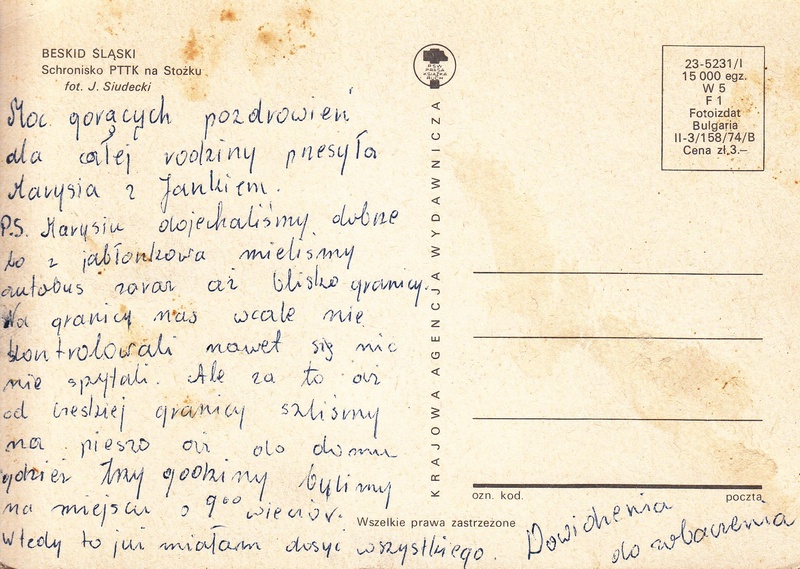 BESKID ŚLĄSKI
Schronisko PTTK na Stożku
fot. J. Siudecki
Moc gorących pozdrowień
dla całej rodziny przesyła
Marysia z Jankiem.
P.S. Marysiu dojechaliśmy dobrze
bo z jabłonkowa mieliśmy
autobus zaraz aż blisko granicy.
Na granicy nas wcale nie
kontrolowali nawet się nic
nie spytali. Ale za to aż
od czeskiej granicy szliśmy
na pieszo aż do domu
gdzieś trzy godziny bylimy
na miejscu o 9⁰⁰ wieczór.
wtedy to już miałam dosyć wszystkiego.
Dowidzenia
do zobaczenia
KRAJOWA AGENCJA WYDAWNICZA
RSW
PRASA
KSIĄŻKA
RUCH
23-5231/I
15 000 egz.
W 5
F 1
Fotoizdat
Bulgaria
II-3/158/74/B
Cena zł 3.–
ozn. kod. poczta
Wszelkie prawa zastrzezone